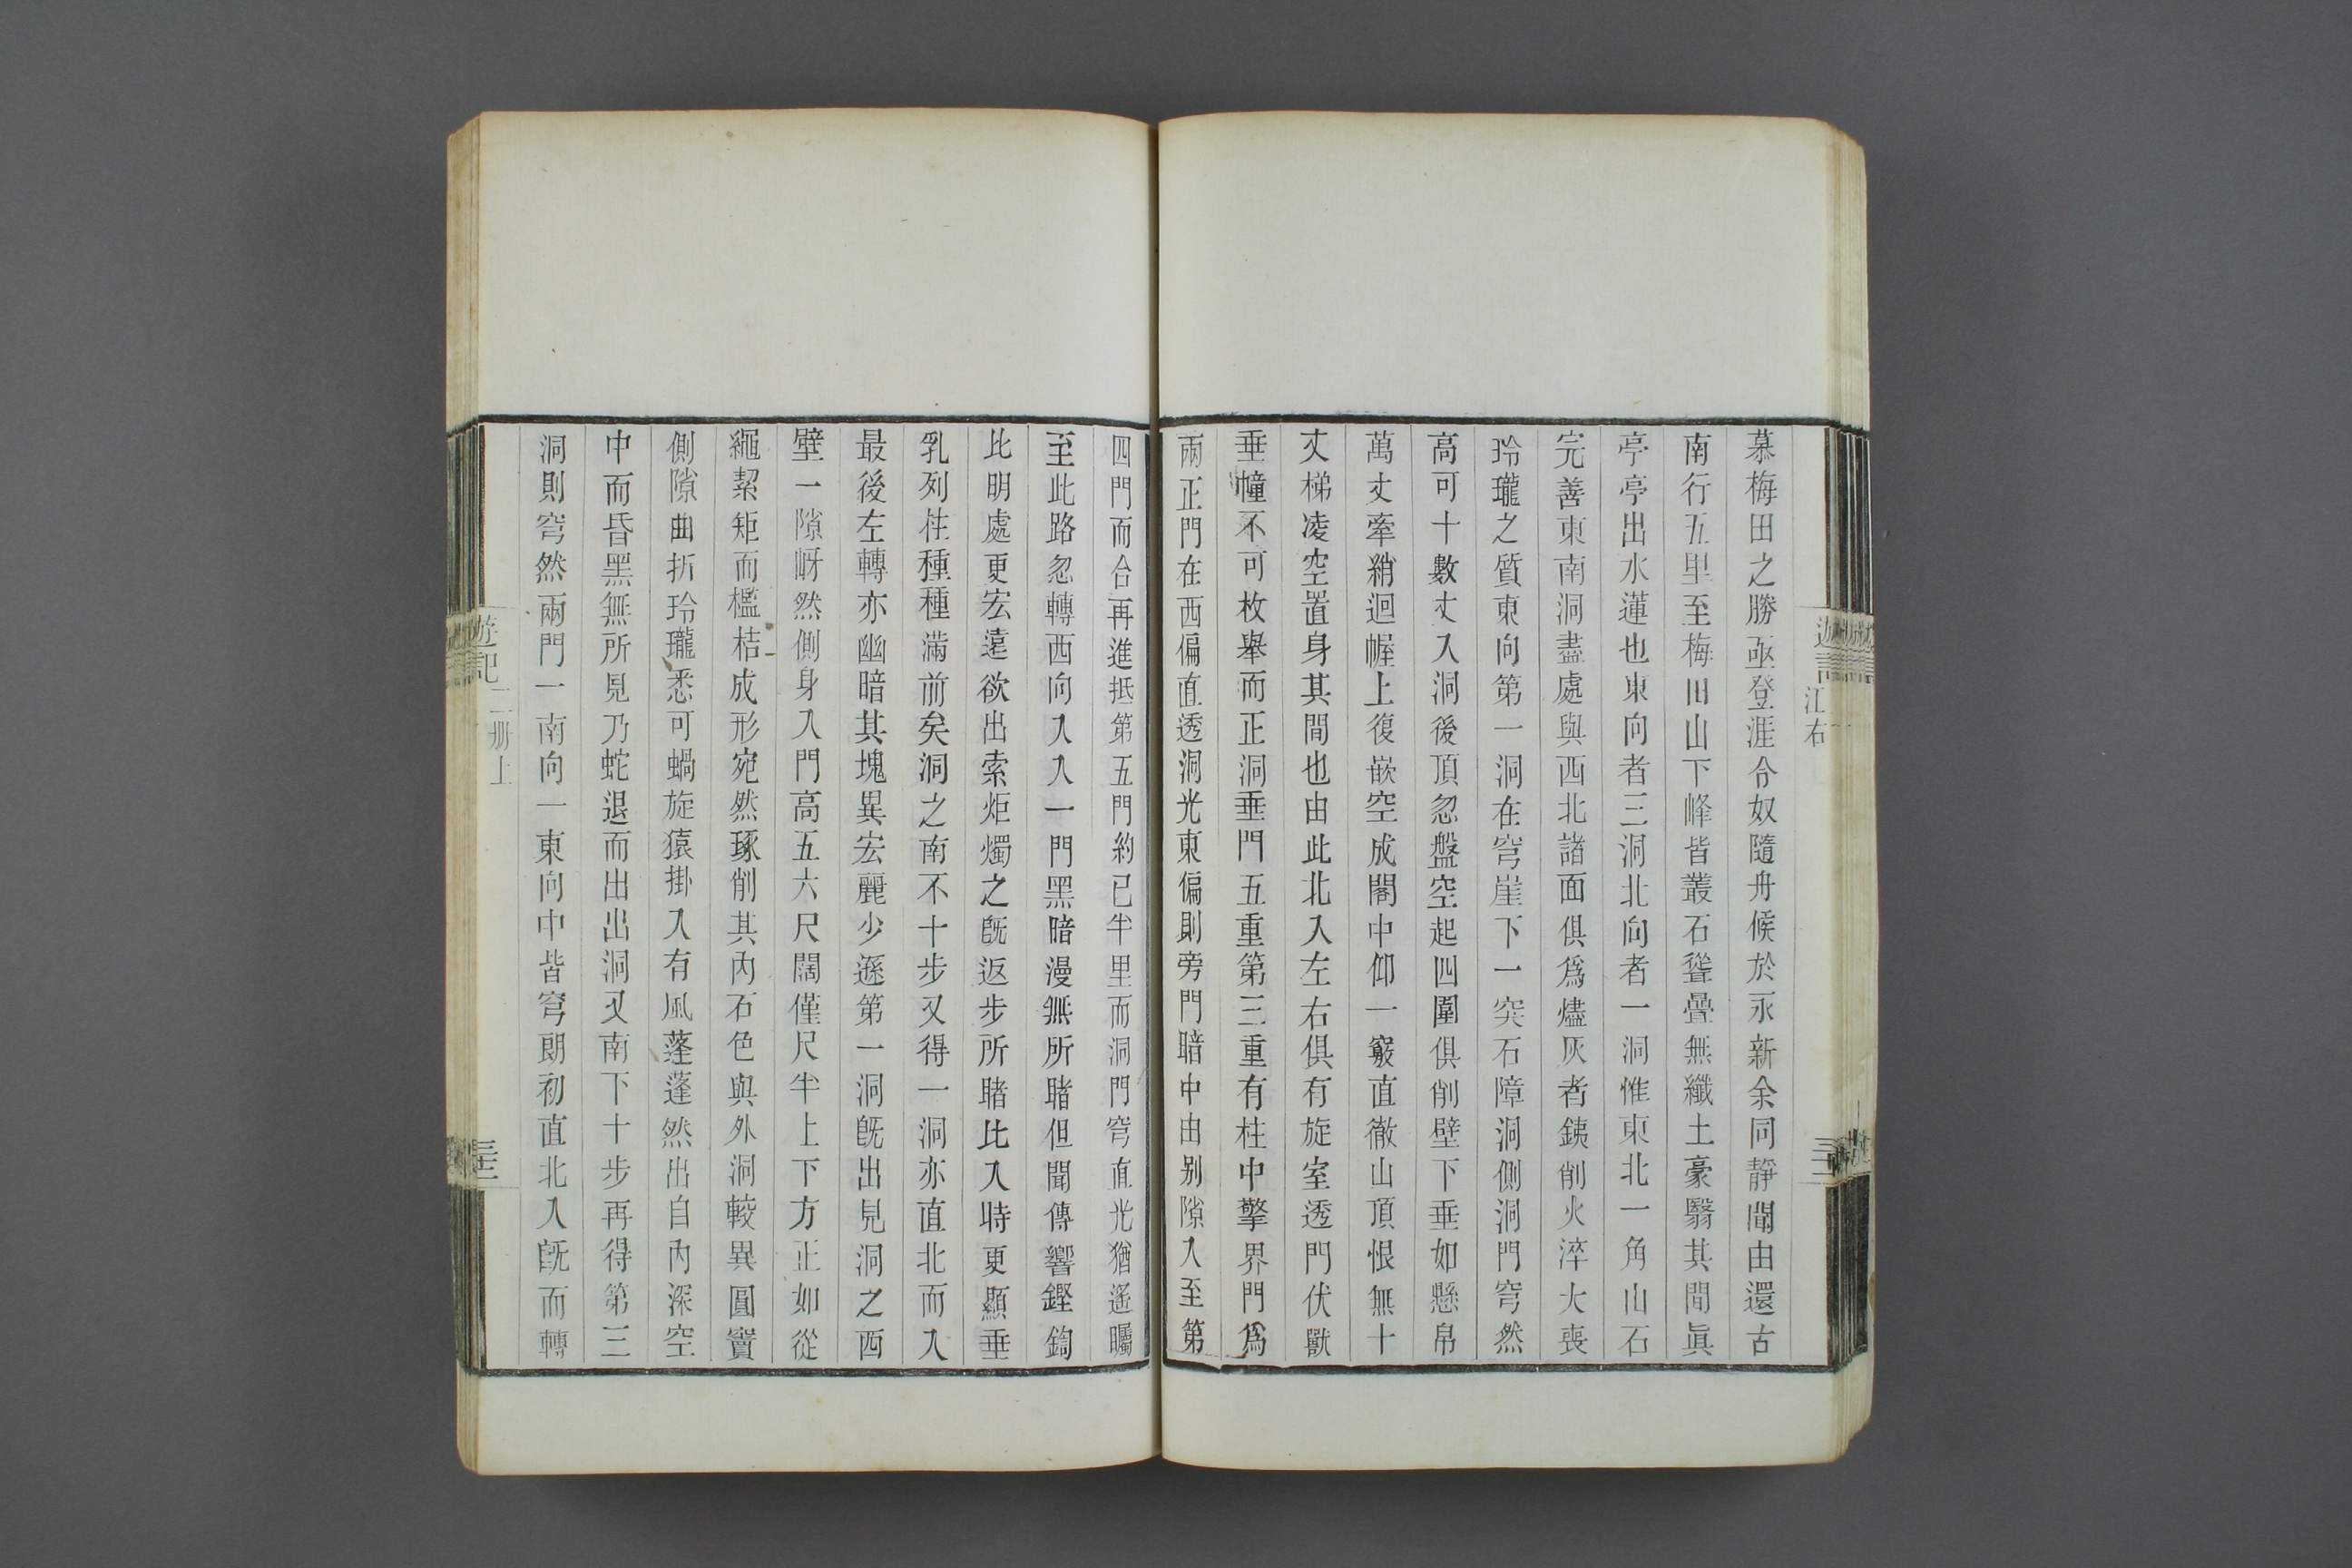 慕梅田之勝亟登涯令奴隨舟候於永新余同靜聞由還古
南行五里至梅田山下峰皆叢石聳疊無纖土豪翳其間眞
亭亭出水蓮也東向者三洞北向者一洞惟東北一角山石
完善東南洞盡處與西北諸面俱爲燼灰者銕削火淬大喪
玲瓏之質東向第一洞在穹崖下一突石障洞側洞門穹然
高可十數丈入洞後頂忽盤空起四圍俱削壁下垂如懸帛
萬丈牽綃迴幄上復嵌空成閣中仰一竅直徹山頂恨無十
丈梯凌空置身其間也由此北入左右俱有旋室透門伏獸
垂幢不可枚舉而正洞垂門五重第三重有柱中擎界門爲
兩正門在西偏直透洞光東偏則旁門暗中由別隙入至第
四門而合再進抵第五門約已半里而洞門穹直光猶遙矚
至此路忽轉西向入入一門黑暗漫無所睹但聞傳響鏗鍧
比明處更宏遠欲出索炬燭之旣返步所睹比入時更顯垂
乳列柱種種滿前矣洞之南不十步又得一洞亦直北而入
最後左轉亦幽暗其塊異宏麗少遜第一洞旣出見洞之西
壁一隙岈然側身入門高五六尺闊僅尺半上下方正如從
繩絜矩而檻桔成形宛然琢削其內石色與外洞較異圓竇
側隙曲折玲瓏悉可蝸旋猿掛入有風蓬蓬然出自內深空
中而昏黑無所見乃蛇退而出出洞又南下十步再得第三
洞則穹然兩門一南向一東向中皆穹朗初直北入旣而轉
遊記
二册上
江右